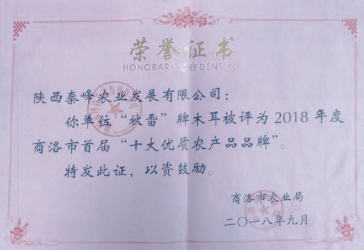 荣誉证书
HONORARY CREDENTIAL
陕西秦峰农业发展有限公司：
你单位“秋雷”牌木耳被评为2018年度
商洛市首届“十大优质农产品品牌”。
特发此证，以资鼓励。
商洛市农业局
二〇一八年九月